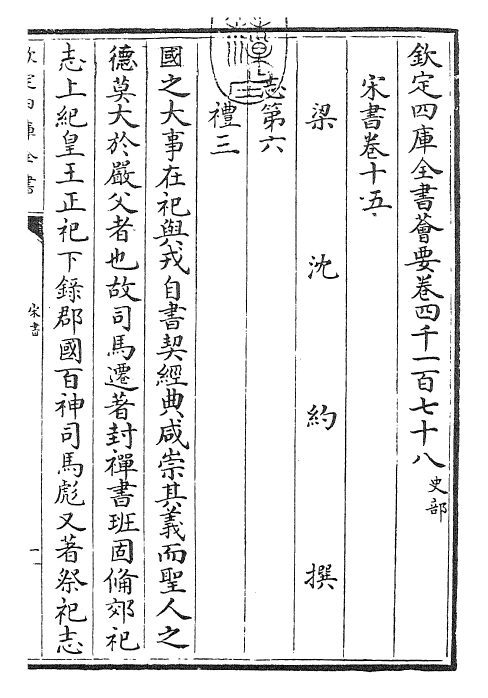 欽定四庫全書薈要卷四千一百七十八史部
宋書卷十五
梁沈約撰
志第六
禮三
國之大事在祀與戎自書契經典咸崇其義而聖人之
德莫大於嚴父者也故司馬遷著封禪書班固脩郊祀
志上紀皇王正祀下錄郡國百神司馬彪又著祭祀志
欽定四庫全書
宋書
一